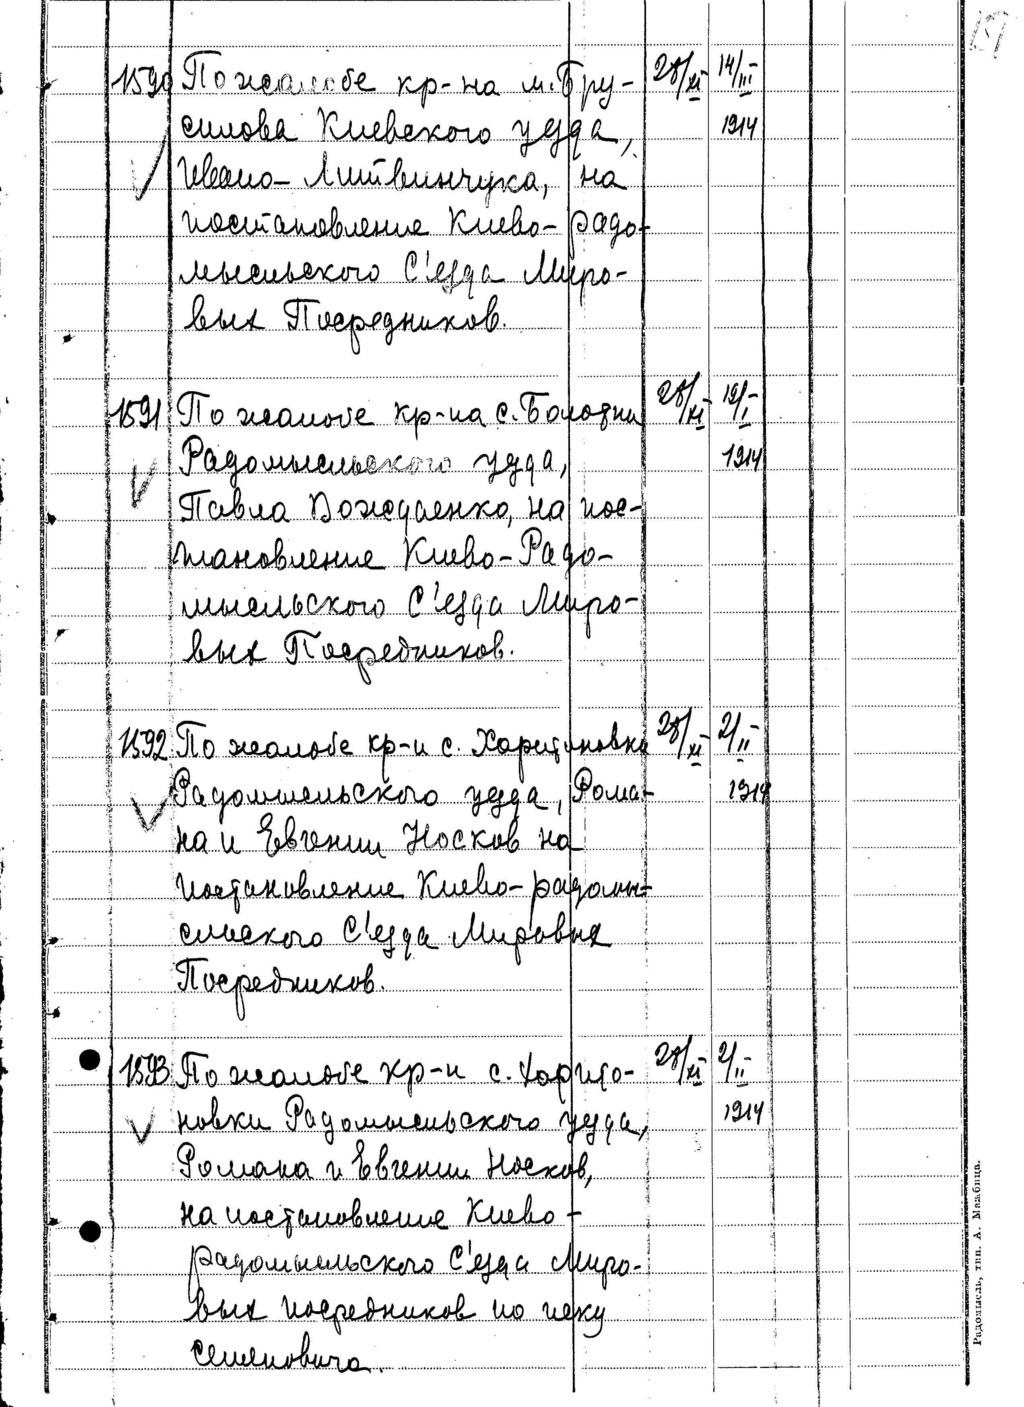 1590 По жалобе кр-на м. Бру- 28/XI 14/III
силова Киевского уезда, 1914
Ивано- Литвинчука, на
постановление Киево-радо-
мысльского С'езда Миро-
вых Посредников.
1591 По жалобе кр-на с. Болотни 28/XI 19/I
Радомысльского уезда, 1914
Павла Вождаенко, на пос-
тановление Киево-Радо-
мысльского С'езда Миро-
вых Посредников.
1592 По жалобе кр-н с. Харитоновки 28/XI 2/II
Радомысльского уезда, Рома- 1914
на и Евгении Носков на
постановление Киево-радомы-
сльского С'езда Мировых
Посредников.
1593 По жалобе кр-н с. Харито- 28/XI 2/II
новки Радомысльского уезда, 1914
Романа и Евгении Носков,
на постановление Киево-
радомысльского С'езда Миро-
вых посредников по иску
Семеновича.
Радомысль, тип. А.